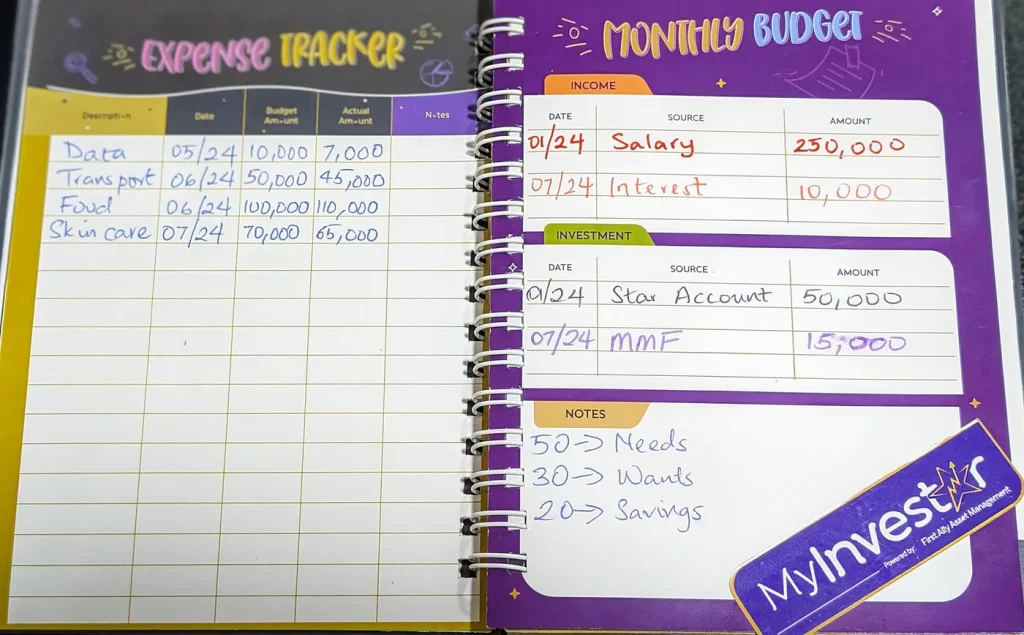 EXPENSE TRACKER
Description Date Budget Amount Actual Amount Notes
Data 05/24 10,000 7,000
Transport 06/24 50,000 45,000
Food 06/24 100,000 110,000
Skin care 07/24 70,000 65,000
MONTHLY BUDGET
INCOME
DATE SOURCE AMOUNT
01/24 Salary 250,000
07/24 Interest 10,000
INVESTMENT
DATE SOURCE AMOUNT
01/24 Star Account 50,000
07/24 MMF 15,000
NOTES
50 → Needs
30 → Wants
20 → Savings
MyInvestar
Powered by: First Ally Asset Management